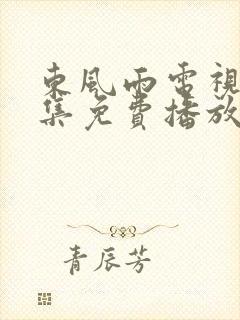 東風雨電視
集免費播放
青辰芳